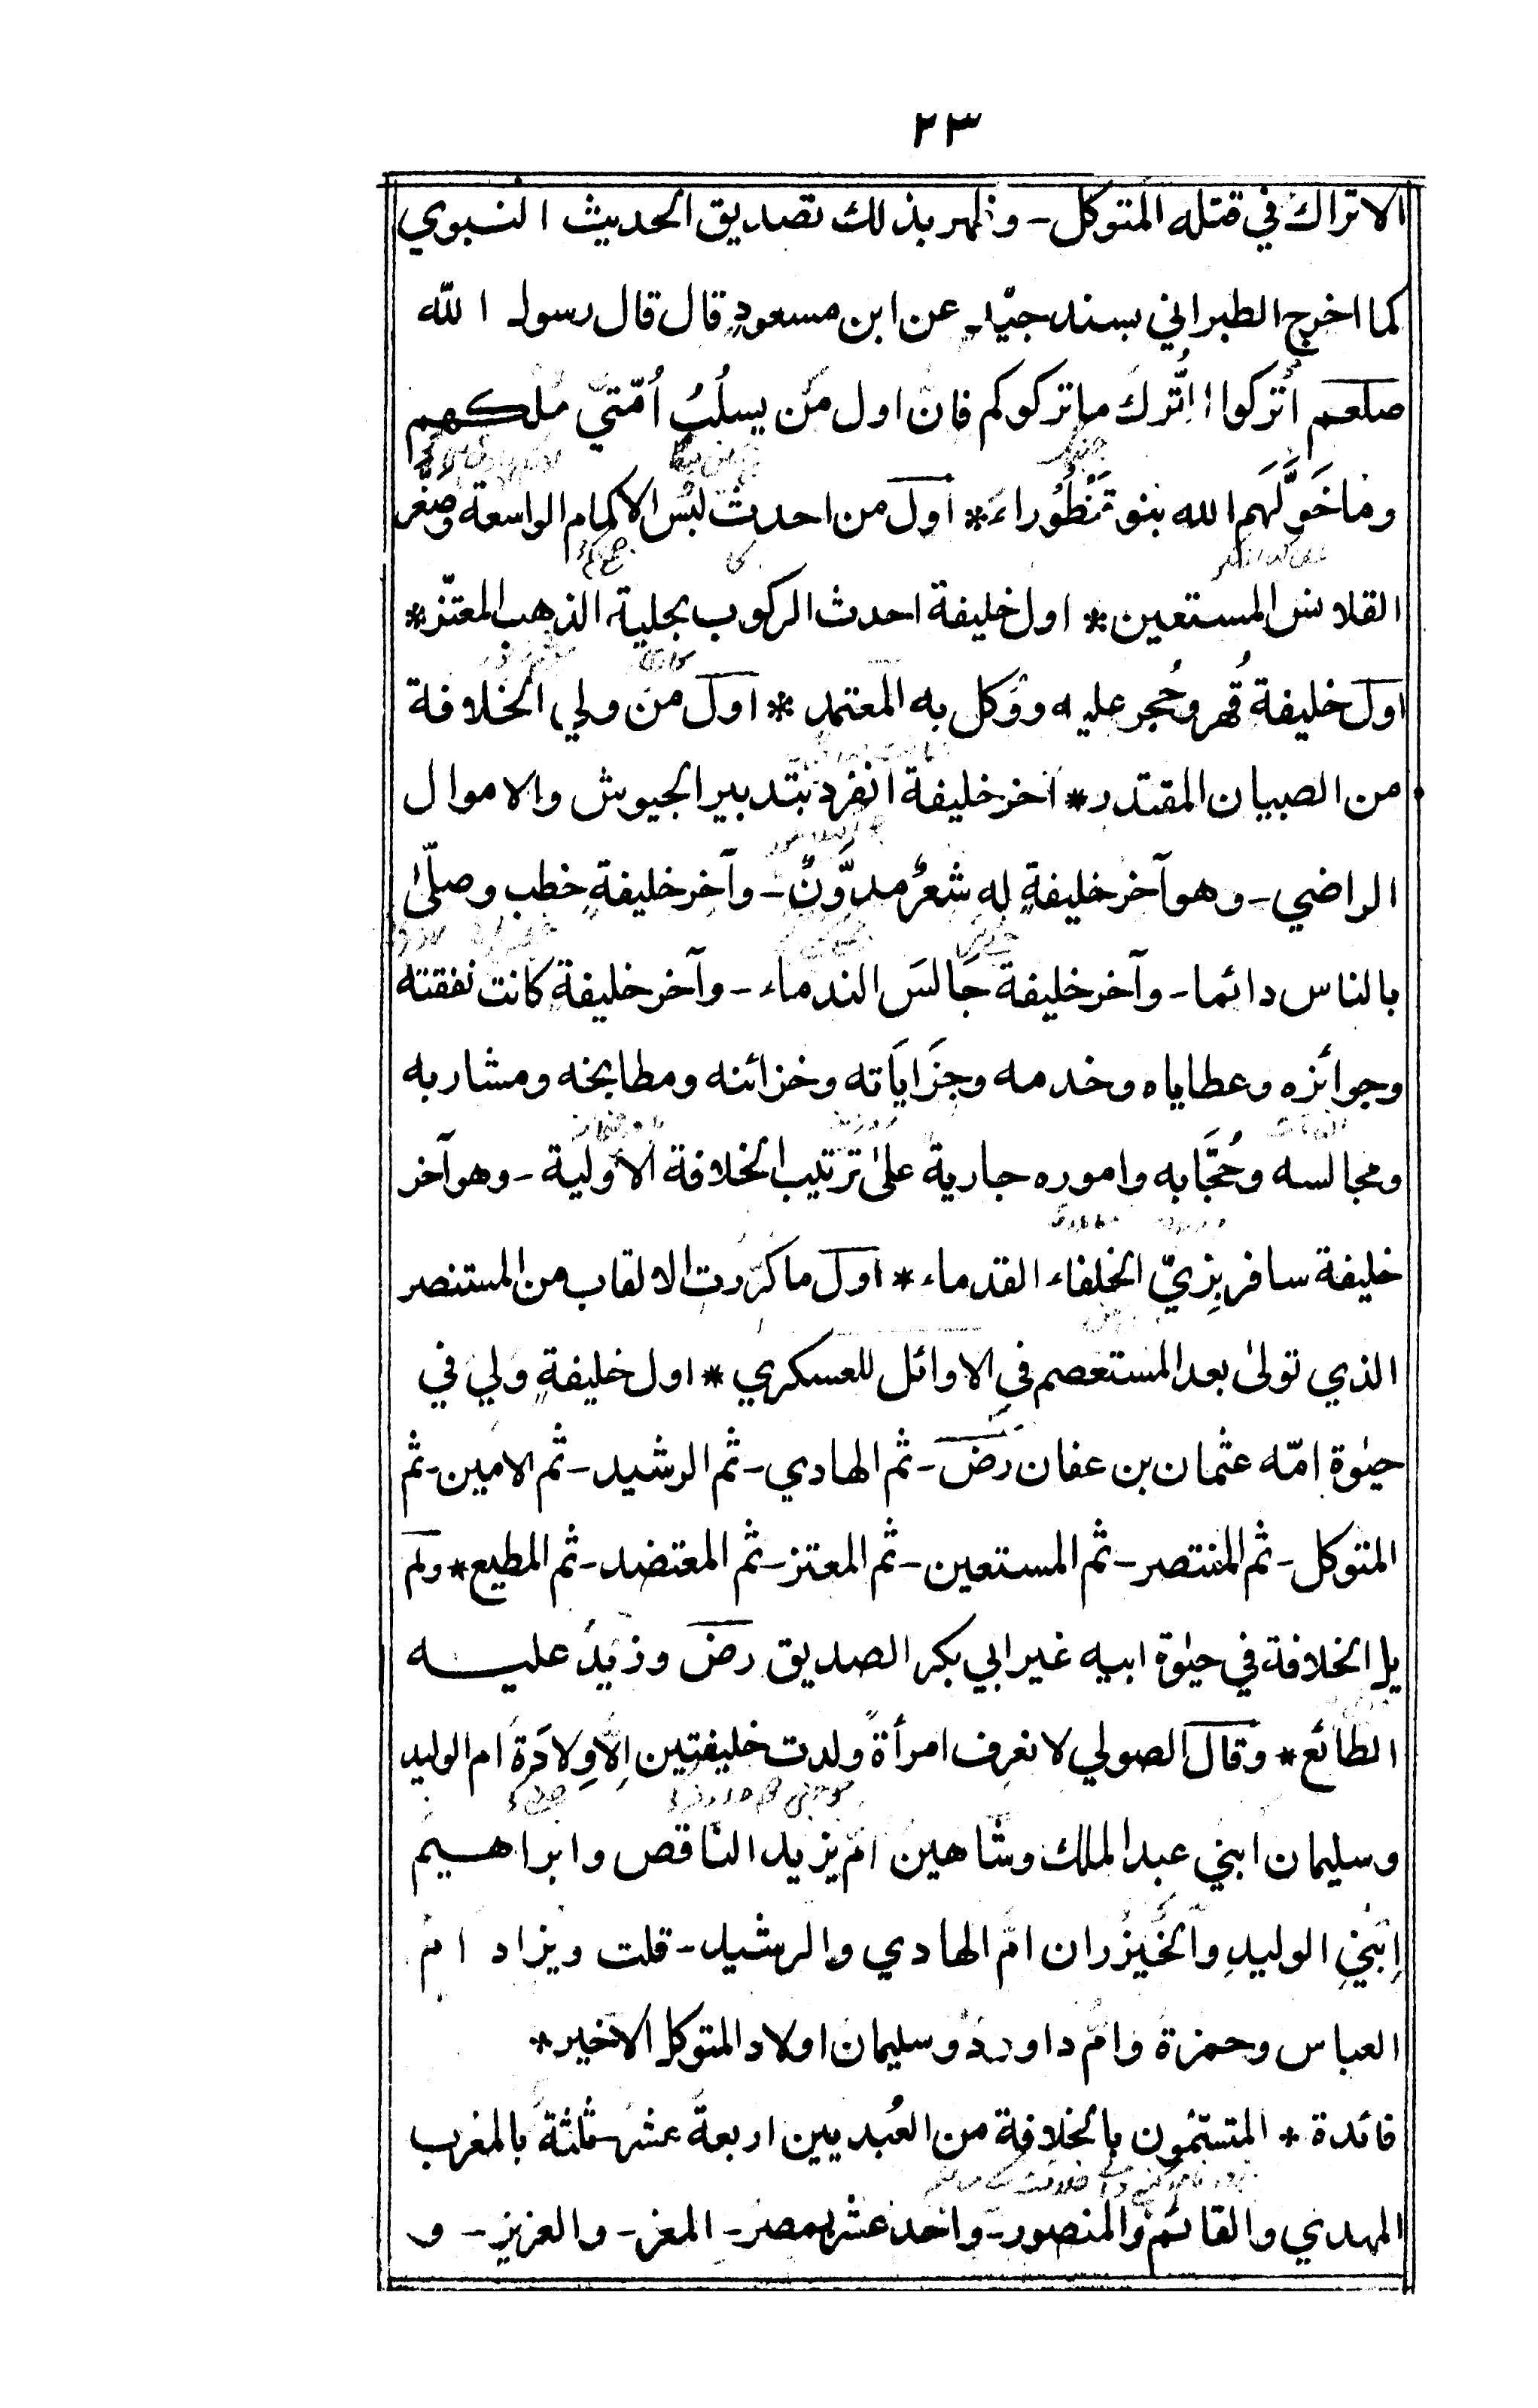 ٢٣
الاتراك في قتله المتوكل - وظهر بذلك تصديق الحديث النبوي
كما اخرج الطبراني بسند جيّد عن ابن مسعودٍ قال قال رسول الله
صلعم اُتركوا التُّرك ما تركوكم فان اول مَن يسلُبُ اُمّتي مُلكهم
وما خَوَّلَهم الله بنو قَنْطُوراء * اول من احدث لُبْس الاكمام الواسعة وصَغَّر
القلانس المستعين * اول خليفة احدث الركوب بحلية الذهب المعتّز *
اول خليفة قُهر وحُجر عليه ووُكل به المعتمد * اول من ولي الخلافة
من الصبيان المقتدر * آخر خليفة انفرد بتدبير الجيوش والاموال
الراضي - وهو آخر خليفةٍ له شعرٌ مدوَّنٌ - وآخر خليفةٍ خطب وصلّىٰ
بالناس دائما - وآخر خليفة جَالسَ الندماء - وآخر خليفةٍ كانت نفقته
وجوائزه وعطاياه وخدمه وجَرَاياَته وخزائنه ومطابخه ومشاربه
ومجالسه وحُجَّابه واموره جارية علىٰ ترتيب الخلافة الاولية - وهو آخر
خليفة سافر بِزيّ الخلفاء القدماء * اول ما كرّرت الالقاب من المستنصر
الذي تولىٰ بعد المستعصم في الاوائل للعسكري * اول خليفةٍ وَلِي في
حيٰوة امّه عثمان بن عفان رَضَ - ثم الهادي - ثم الرشيد - ثم الامين - ثم
المتوكل - ثم المنتصر - ثم المستعين - ثم المعتز - ثم المعتضد - ثم المطيع * ولم
يل الخلافة في حيٰوة ابيه غير ابي بكر الصديق رضَ وزيدَ عليه
الطائع * وقال الصولي لا نعرف امرأةً ولدت خليفتين اِلّا وِلادَة ام الوليد
وسليمان ابني عبد الملك وشاهين امّ يزيد الناقص وابراهيم
اِبْنيِ الوليدِ والخَيزُران امّ الهادي والرشيد - قلت ويزاد امّ
العباس وحمزة وامّ داود وسليمان اولاد المتوكل الاخير *
فائدة * المتسمّون بالخلافة من العُبديين اربعة عشر ثلٰثة بالمغرب
المهدي والقائم والمنصور - واحد عشر بمصر - المعز - والعزيز - و